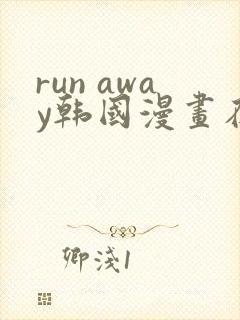 run awa
y韩國漫畫在
卿淺1